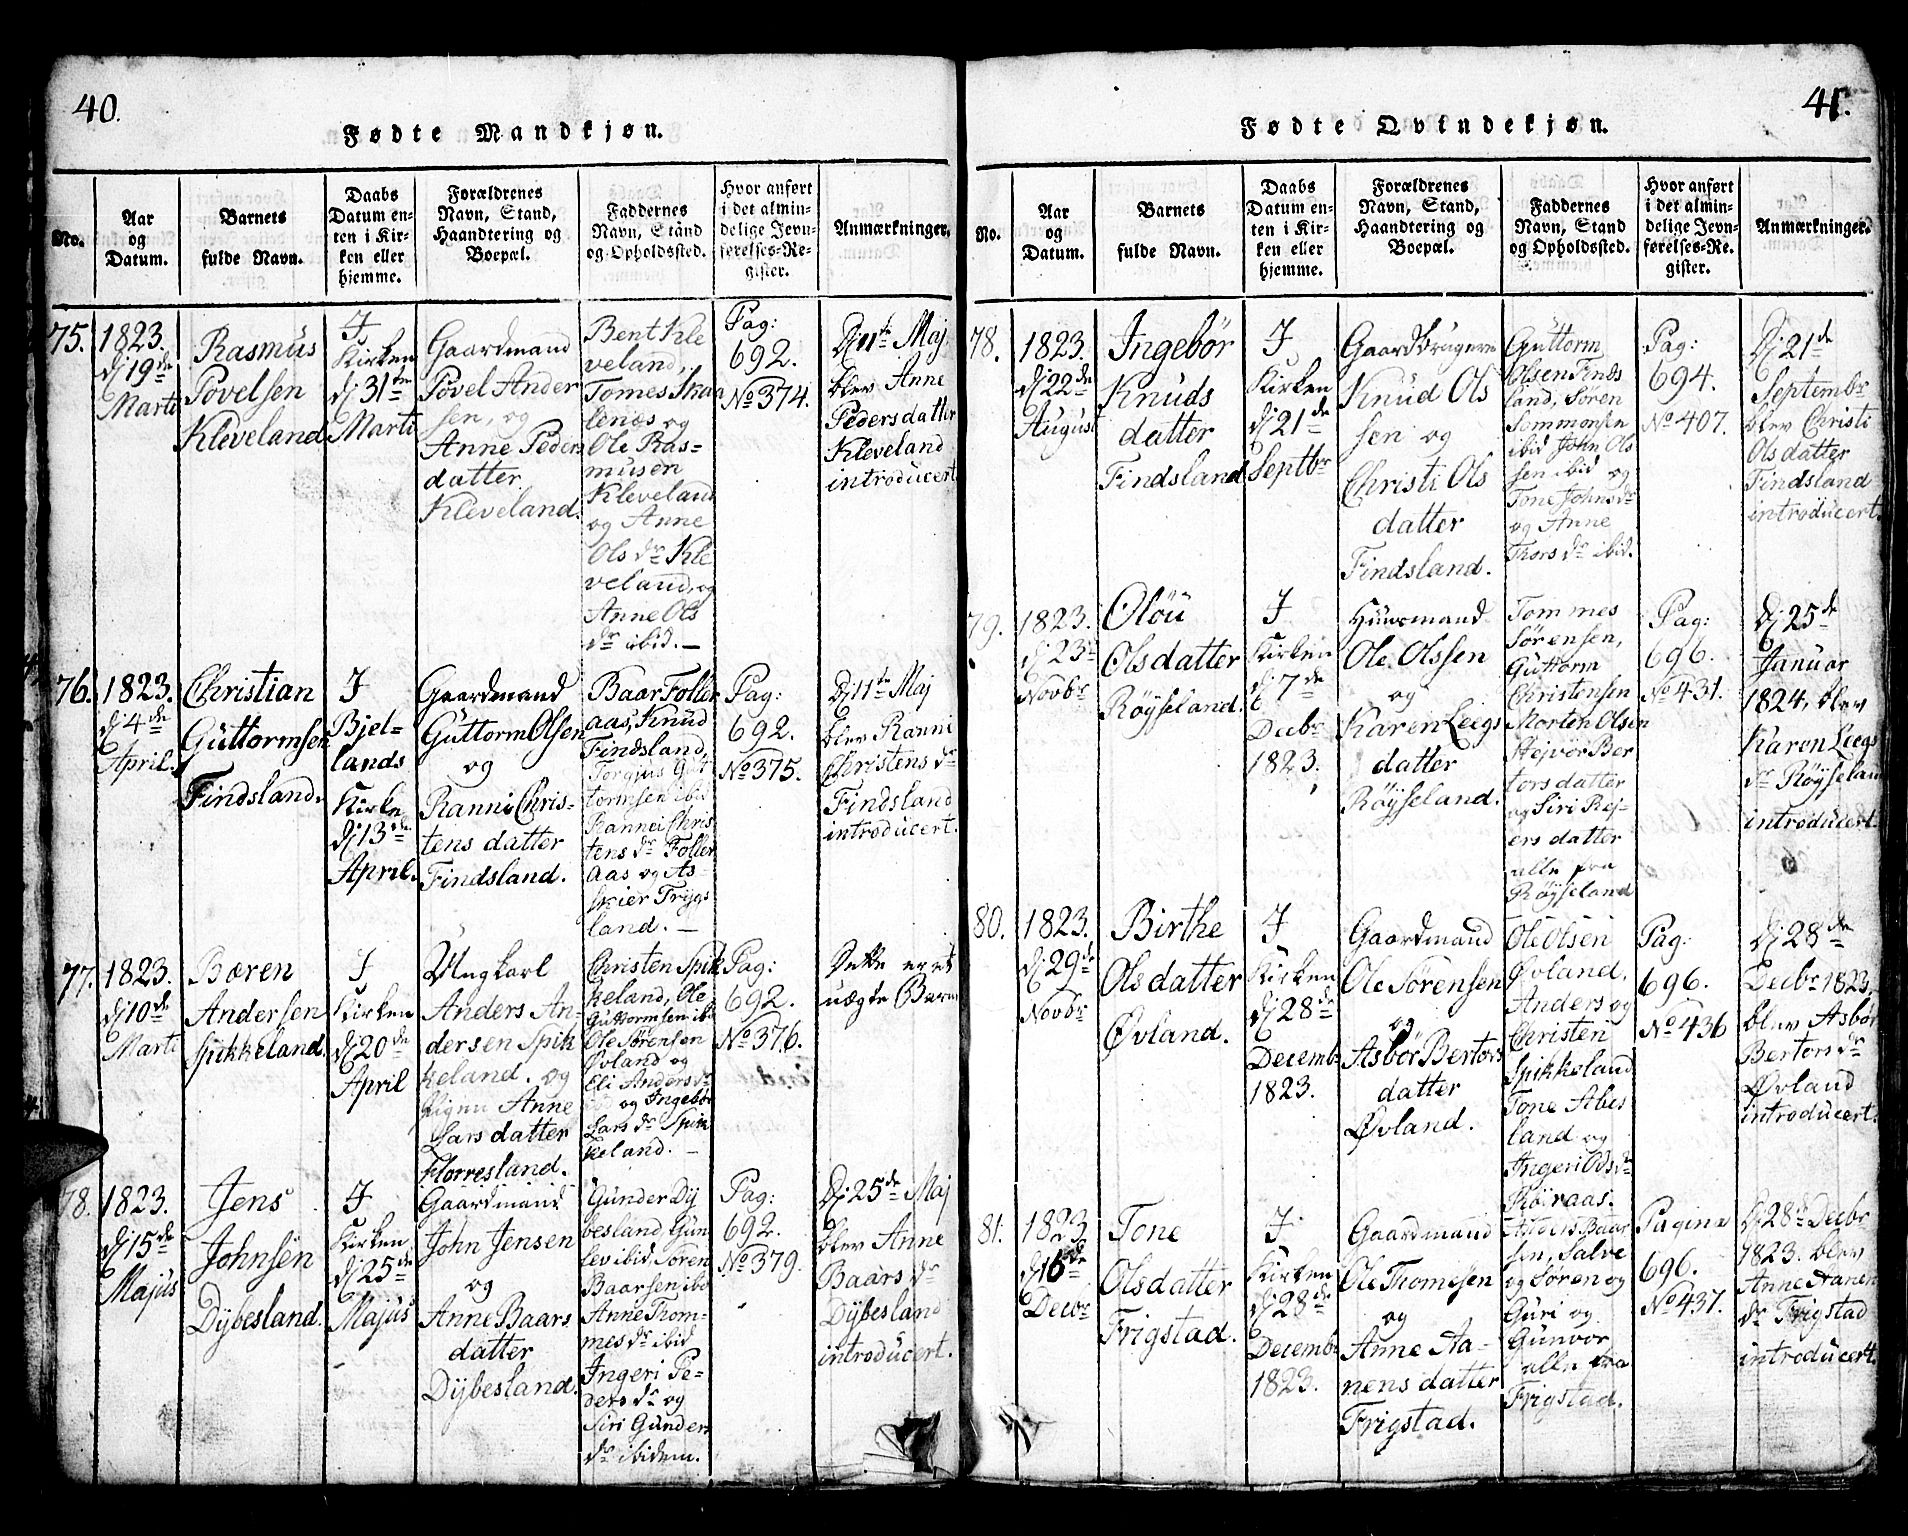 40.
Fødte Mandkjøn.
No.
Aar
og
Datum.
Barnets
fulde Navn.
Daabs
Datum en-
ten i Kir-
ken eller
hjemme.
Forældrenes
Navn, Stand,
Haandtering og
Boepæl.
Faddernes
Navn, Stand
og Opholdssted.
Hvor anført
i det almin-
delige Jevn-
førelses-Re-
gister.
Anmærkninger.
75.
1823.
Dj 19de
Marti
Rasmus
Povelsen
Kleveland
I
Kirken
dj 31te
Marti
Gaardmand
Povel Ander
sen, og
Anne Peders
datter
Kleveland.
Bent Kle
veland,
Tomes Skaa
lenes og
Ole Ras-
musen
Kleveland
og Anne
Ols dr Kle
veland, og
Anne Ols
dr ibid. —
Pag:
692.
No 374.
Dj 11te Maj
blev Anne
Pedersdatter
Kleveland
introducert.
76.
1823.
dj 4de
April.
Christian
Guttormsen
Findsland.
I
Bjel-
lands
Kirke
dj 13de
April.
Gaardmand
Guttorm Olsen
og
Ranni Chris-
tens datter
Findsland.
Baar Foller
aas, Knud
Findsland,
Torgius Gut
tormsen ibid
Rannei Chris
tens dr Foller
aas og As-
skier Trygs
land. —
Pag:
692.
No 375.
Dj 11te Maj
blev Ranni
Christens dr
Findsland
introducert.
77.
1823.
dj 10de
Marti
Bæren
Andersen
Spikkeland.
I
Kirken
dj 20de
April
Ungkarl
Anders An-
dersen Spik
keland. og
Pigen Anne
Lars datter
Florresland.
Christen Spik
keland, Ole
Guttormsen ibd
Ole Sørensen
Øvland og
Eli Anders dr
og Ingebør
Lars dr Spik
keland. —
Pag:
692.
No 376.
Dette er et
uægte Barn
78.
1823.
Dj 15de
Majus
Jens
Johnsen
Dÿbesland.
I
Kirken
dj 25de
Majus
Gaardmand
John Jensen
og
Anne Baars
datter
Dÿbesland.
Gunder Dÿ
besland, Gun
lev ibid, Søren
Baarsen ibd
Anne Thom-
mes dr ibid
Ingeri Pe-
ders dr og
Siri Gunders
dr ibidem.
Pag:
692.
No 379.
Dj 25de Maj
blev Anne
Baars dr
Dÿbesland
introducert.
41.
Fødte Qvindekjøn.
No.
Aar
og
Datum.
Barnets
fulde Navn.
Daabs
Datum en-
ten i Kir-
ken eller
hjemme.
Forældrenes
Navn, Stand,
Haandtering og
Boepæl.
Faddernes
Navn, Stand
og Opholdssted.
Hvor anført
i det almin-
delige Jevn-
førelses-Re-
gister.
Anmærkninger.
78.
1823.
dj 22de
August
Ingebör
Knuds
datter
Findsland
I
Kirken
dj 21de
Septbr
Gaardbrugeren
Knud Ols
sen og
Christi Ols
datter
Findsland.
Guttorm
Olsen Finds
land, Søren
Sommonsen
ibid John Ols
sen ibid og
Tone Johns dr
og Anne
Thors dr ibid.
Pag:
694.
No 407.
Dj 21de
Septembr
blev Christi
Olsdatter
Findsland
introducert.
79.
1823.
dj 23de
Novbr
Olöu
Olsdatter
Röÿseland.
I
Kirken
dj 7de
Decbr
1823.
Huusmand
Ole Olssen
og
Karen Leegs
datter
Röÿseland.
Tommes
Sørensen,
Guttorm
Christensen
Morten Olsen
Hejvor Ber
tors datter
og Siri Rej-
ers datter
alle fra
Röÿseland
Pag:
696.
No 431.
Dj 25de
Januar
1824, blev
Karen Leegs
dr Röÿseland
introducert.
80.
1823.
dj 29de
Novbr
Birthe
Olsdatter
Øvland.
I
Kirken
dj 28de
Decembr
1823.
Gaardmand
Ole Sørensen
og
Asbør Bertors
datter
Øvland.
Ole Olsen
Øvland.
Anders og
Christen
Spikkeland
Tone Abes
land og
Ingeri Ods dr
Röiraas.
Pag:
696.
No 436
Dj 28de
Decbr 1823.
blev Asbør
Bertors dr
Øvland
introducert.
81.
1823
dj 16de
Decbr
Tone
Olsdatter
Frigstad.
I
Kirken
dj 28de
Decembr
1823.
Gaardmand
Ole Thomesen
og
Anne Aa-
nens datter
Frigstad.
Baar
sen, Salve
og Søren og
Guri og
Gunvor
alle fra
Frigstad.
Pagina
696.
No 437.
Dj 28de Decbr
1823. blev
Anne Aanens
dr Frigstad
introducert.